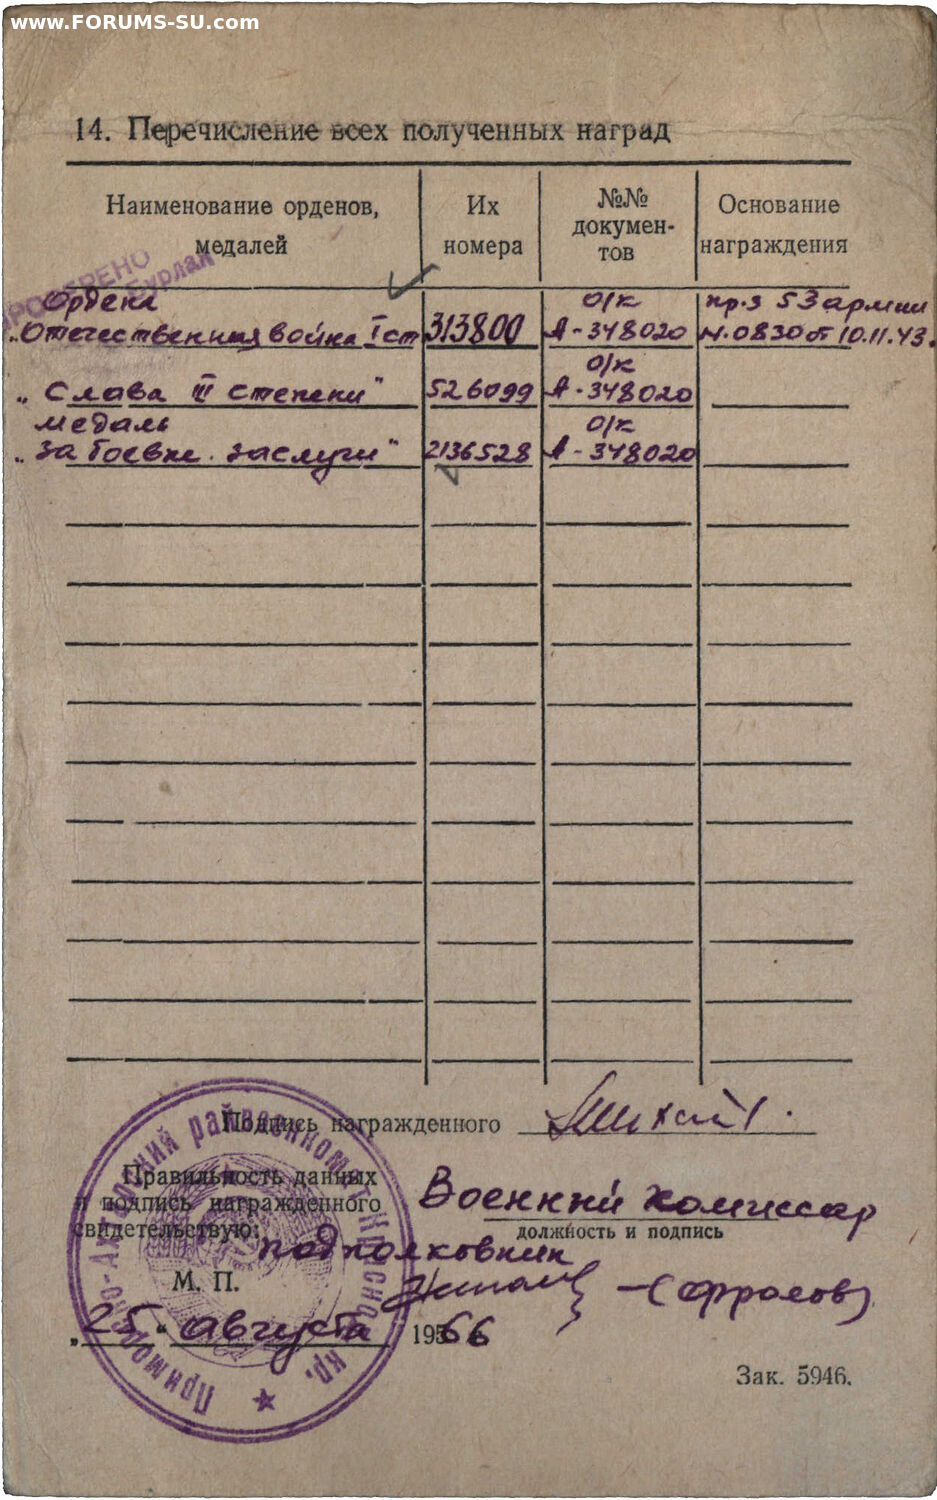 www.FORUMS-SU.com
14. Перечисление всех полученных наград
Наименование орденов, медалей
Их номера
№№ докумен-тов
Основание награждения
ПРОВЕРЕНО
Бурлак
Ордена
„Отечественная война I ст 313800 о/к А-348020 пр.з 53 армии №.0830 от 10.11.43.
„Слава III степени" 526099 о/к А-348020
медаль
„за боевые заслуги" 2136528 о/к А-348020
Подпись награжденного
Правильность данных
и подпись награжденного
свидетельствую:
Военный комиссар
должность и подпись
подполковник
М. П.
(Фролов)
„25" августа 1966
Зак. 5946.
Приморско-Ахтарский райвоенкомат Красно. кр.